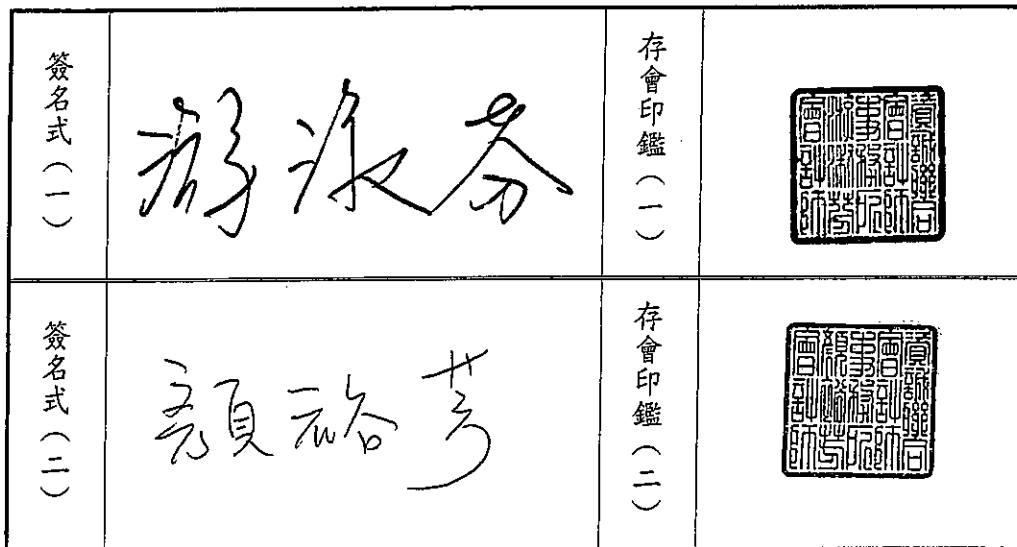 簽名式（一）
游淑芬
存會印鑑（一）
資誠聯合
會計師
事務所
游淑芬
會計師
簽名式（二）
顏裕芳
存會印鑑（二）
資誠聯合
會計師
事務所
顏裕芳
會計師